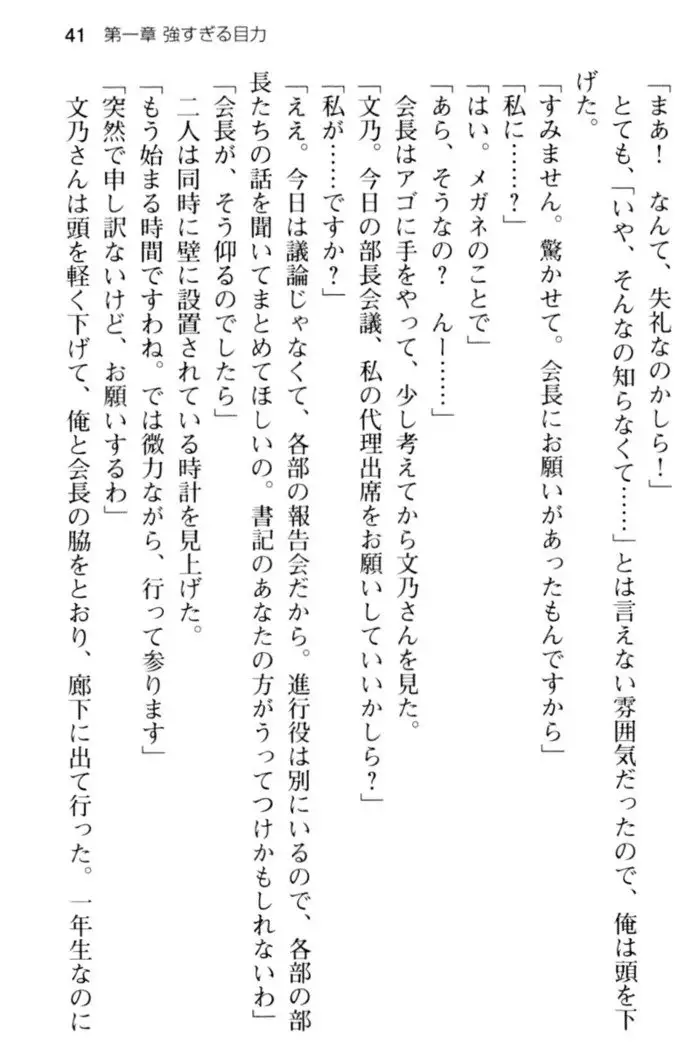 41　第一章 強すぎる目力
「まあ！　なんて、失礼なのかしら！」
　とても、「いや、そんなの知らなくて……」とは言えない雰囲気だったので、俺は頭を下
げた。
「すみません。驚かせて。会長にお願いがあったもんですから」
「私に……？」
「はい。メガネのことで」
「あら、そうなの？　んー……」
　会長はアゴに手をやって、少し考えてから文乃さんを見た。
「文乃。今日の部長会議、私の代理出席をお願いしていいかしら？」
「私が……ですか？」
「ええ。今日は議論じゃなくて、各部の報告会だから。進行役は別にいるので、各部の部
長たちの話を聞いてまとめてほしいの。書記のあなたの方がうってつけかもしれないわ」
「会長が、そう仰るのでしたら」
　二人は同時に壁に設置されている時計を見上げた。
「もう始まる時間ですわね。では微力ながら、行って参ります」
「突然で申し訳ないけど、お願いするわ」
　文乃さんは頭を軽く下げて、俺と会長の脇をとおり、廊下に出て行った。一年生なのに